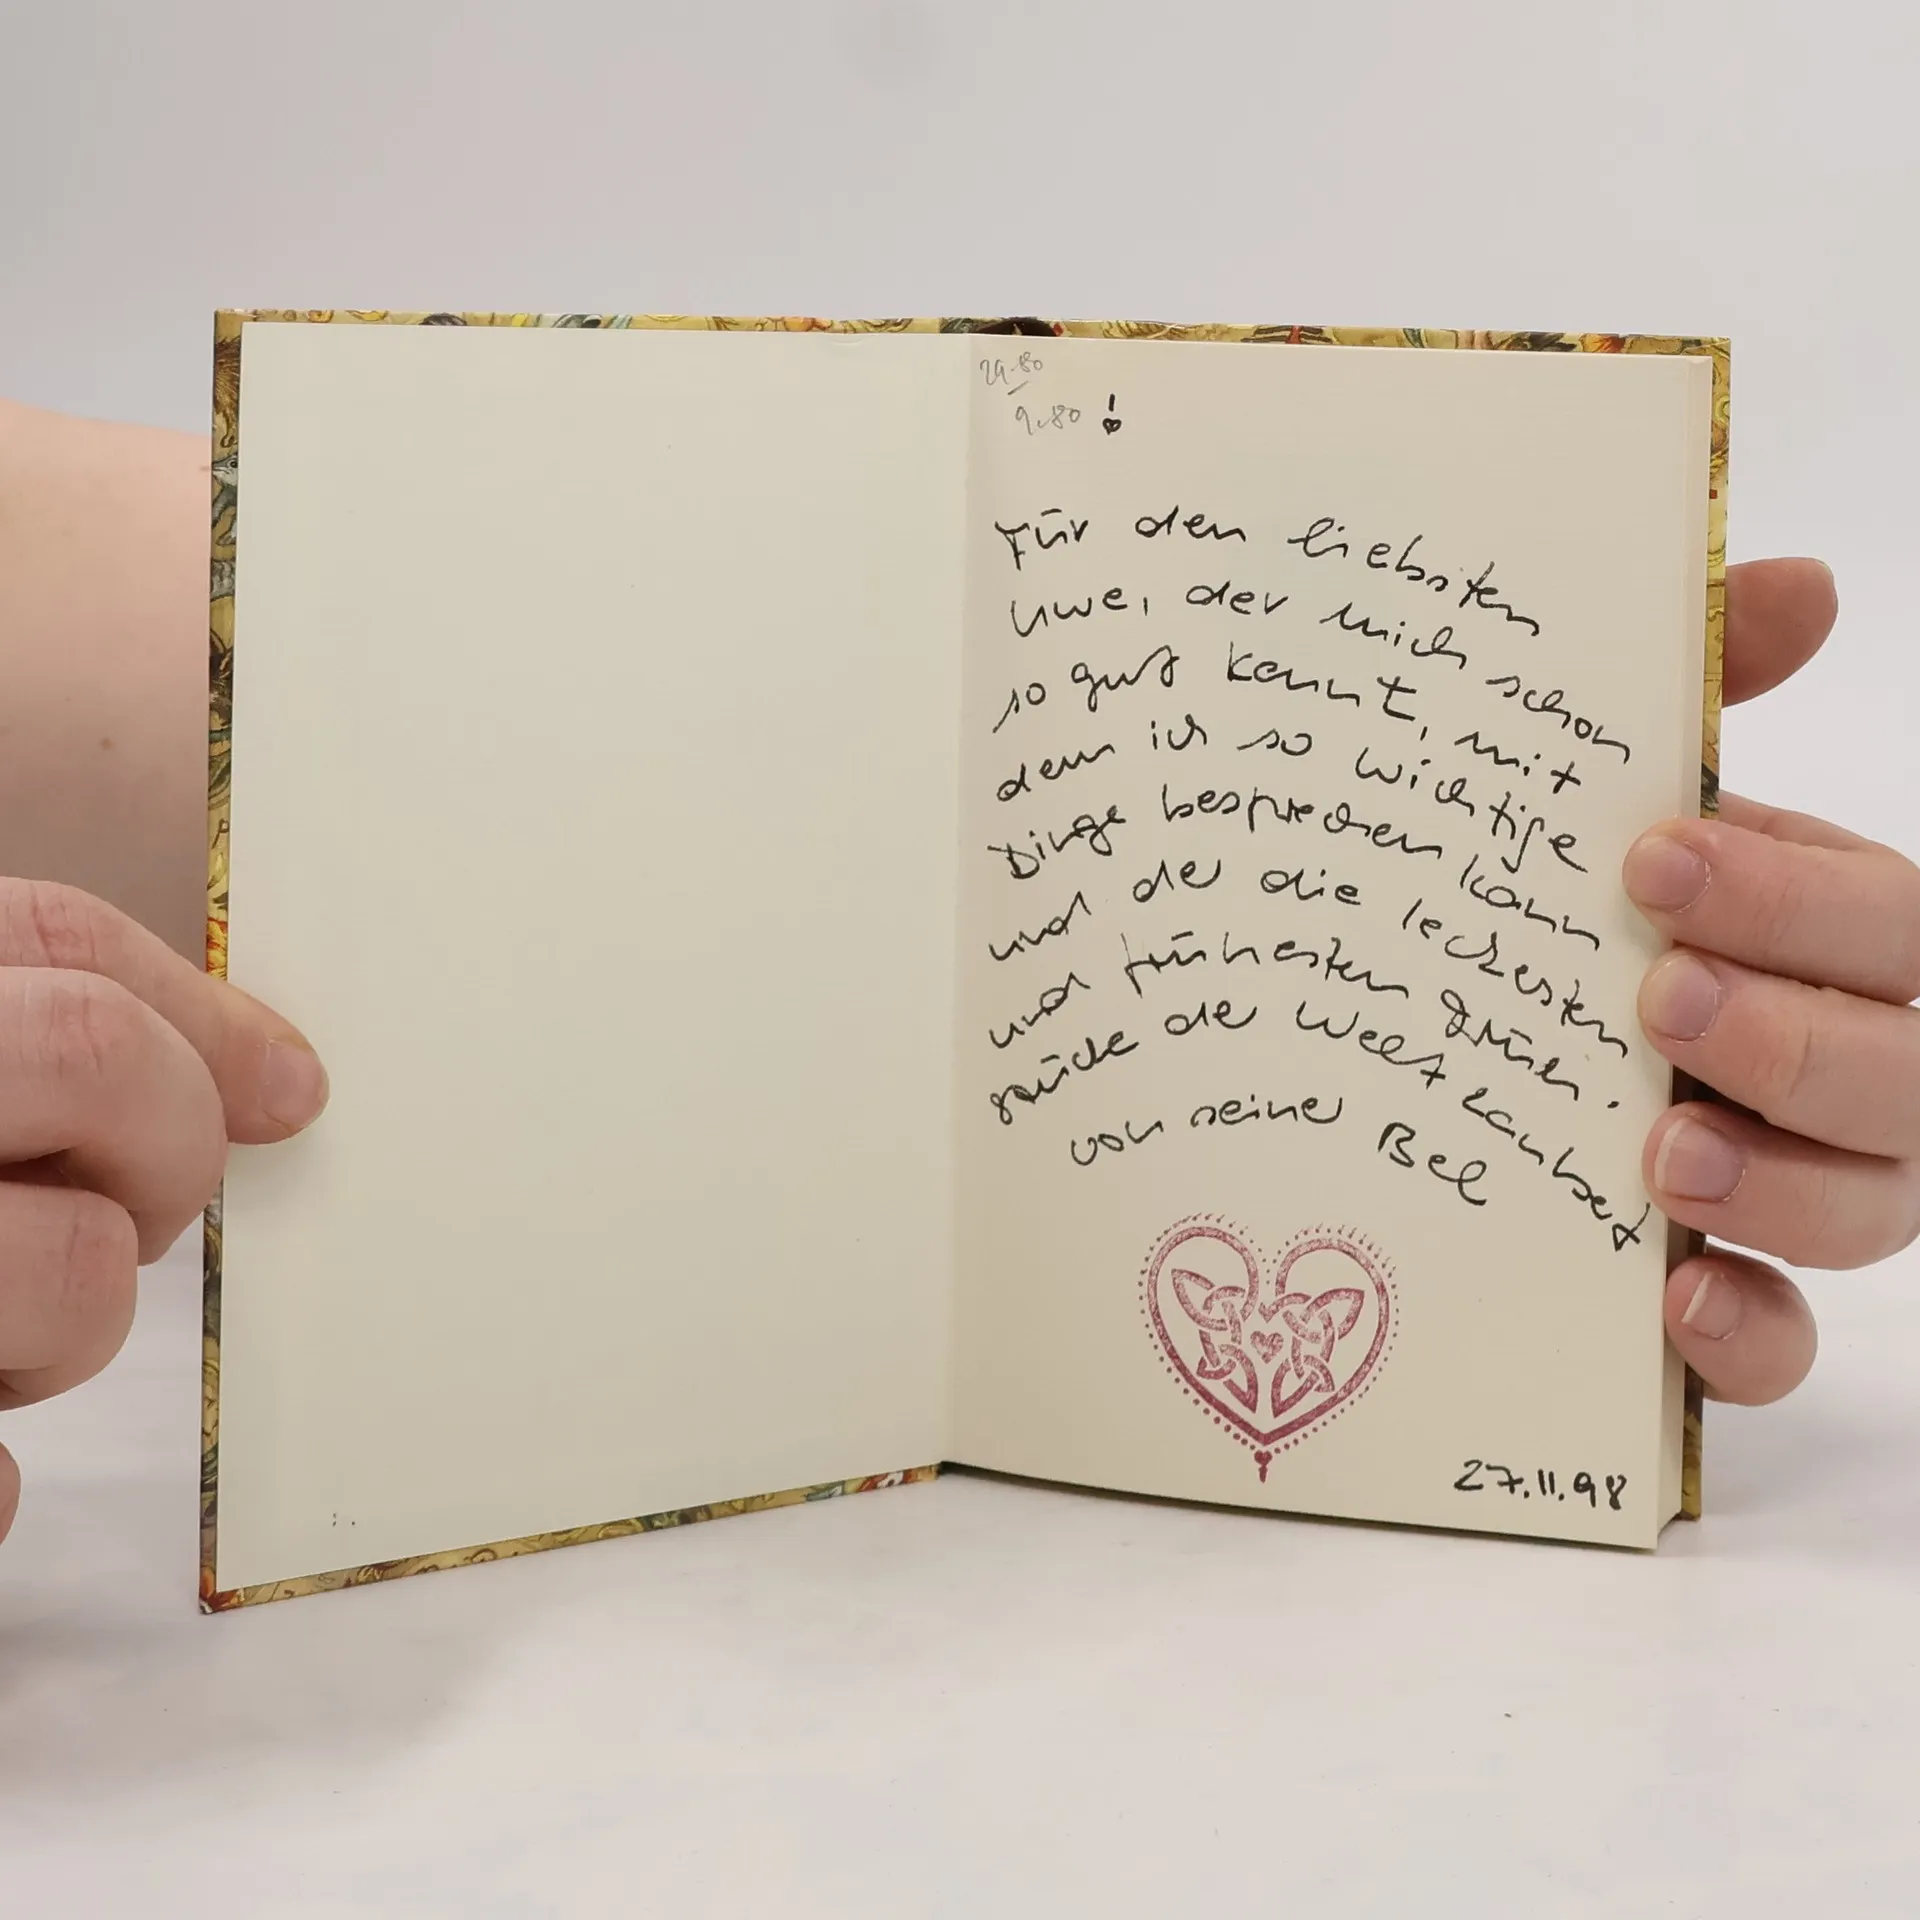 29.80
9.80 !
Für den liebsten
Uwe, der mich schon
so gut kennt, mit
dem ich so wichtige
Dinge besprechen kann
und der die leckersten
und frühesten Früh-
stücke der Welt zaubert.
von seiner Bel
27.11.98